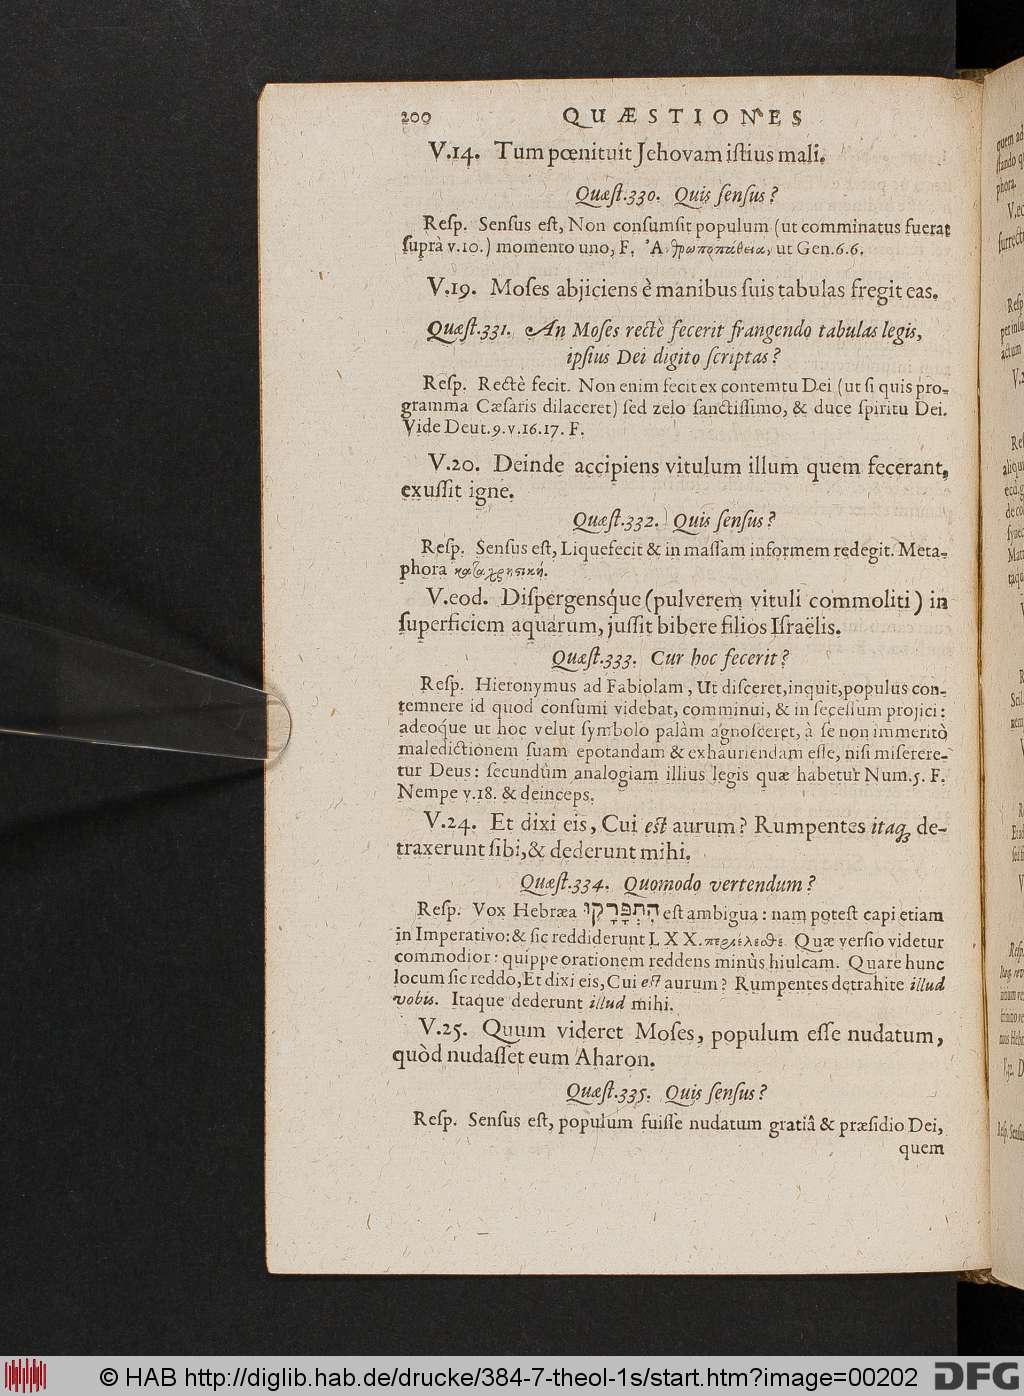 200 QUÆSTIONES
V.14. Tum pœnituit Jehovam iſtius mali.
Quæſt.330. Quis ſenſus?
Reſp. Senſus eſt, Non conſumſit populum (ut comminatus fuerat
ſuprà v.10.) momento uno, F. Ἀνθρωποπάθεια, ut Gen.6.6.
V.19. Moſes abjiciens è manibus ſuis tabulas fregit eas.
Quæſt.331. An Moſes rectè fecerit frangendo tabulas legis,
ipſius Dei digito ſcriptas?
Reſp. Rectè fecit. Non enim fecit ex contemtu Dei (ut ſi quis pro-
gramma Cæſaris dilaceret) ſed zelo ſanctiſſimo, & duce ſpiritu Dei.
Vide Deut.9.v.16.17. F.
V.20. Deinde accipiens vitulum illum quem fecerant,
exuſſit igne.
Quæſt.332. Quis ſenſus?
Reſp. Senſus eſt, Liquefecit & in maſſam informem redegit. Meta-
phora καταχρηστική.
V.eod. Diſpergensq́ue (pulverem vituli commoliti) in
ſuperficiem aquarum, juſſit bibere filios Iſraëlis.
Quæſt.333. Cur hoc fecerit?
Reſp. Hieronymus ad Fabiolam, Ut diſceret, inquit, populus con-
temnere id quod conſumi videbat, comminui, & in ſeceſſum projici:
adeoq́ue ut hoc velut ſymbolo palàm agnoſceret, à ſe non immeritò
maledictionem ſuam epotandam & exhauriendam eſſe, niſi miſerere-
tur Deus: ſecundùm analogiam illius legis quæ habetur Num.5. F.
Nempe v.18. & deinceps.
V.24. Et dixi eis, Cui eſt aurum? Rumpentes itaq; de-
traxerunt ſibi, & dederunt mihi.
Quæſt.334. Quomodo vertendum?
Reſp. Vox Hebræa הִתְפָּרָקוּ eſt ambigua: nam poteſt capi etiam
in Imperativo: & ſic reddiderunt LXX. περιέλεσθε. Quæ verſio videtur
commodior: quippe orationem reddens minùs hiulcam. Quare hunc
locum ſic reddo, Et dixi eis, Cui eſt aurum? Rumpentes detrahite illud
vobis. Itaque dederunt illud mihi.
V.25. Quum videret Moſes, populum eſſe nudatum,
quòd nudaſſet eum Aharon.
Quæſt.335. Quis ſenſus?
Reſp. Senſus eſt, populum fuiſſe nudatum gratiâ & præſidio Dei,
quem
© HAB http://diglib.hab.de/drucke/384-7-theol-1s/start.htm?image=00202
DFG